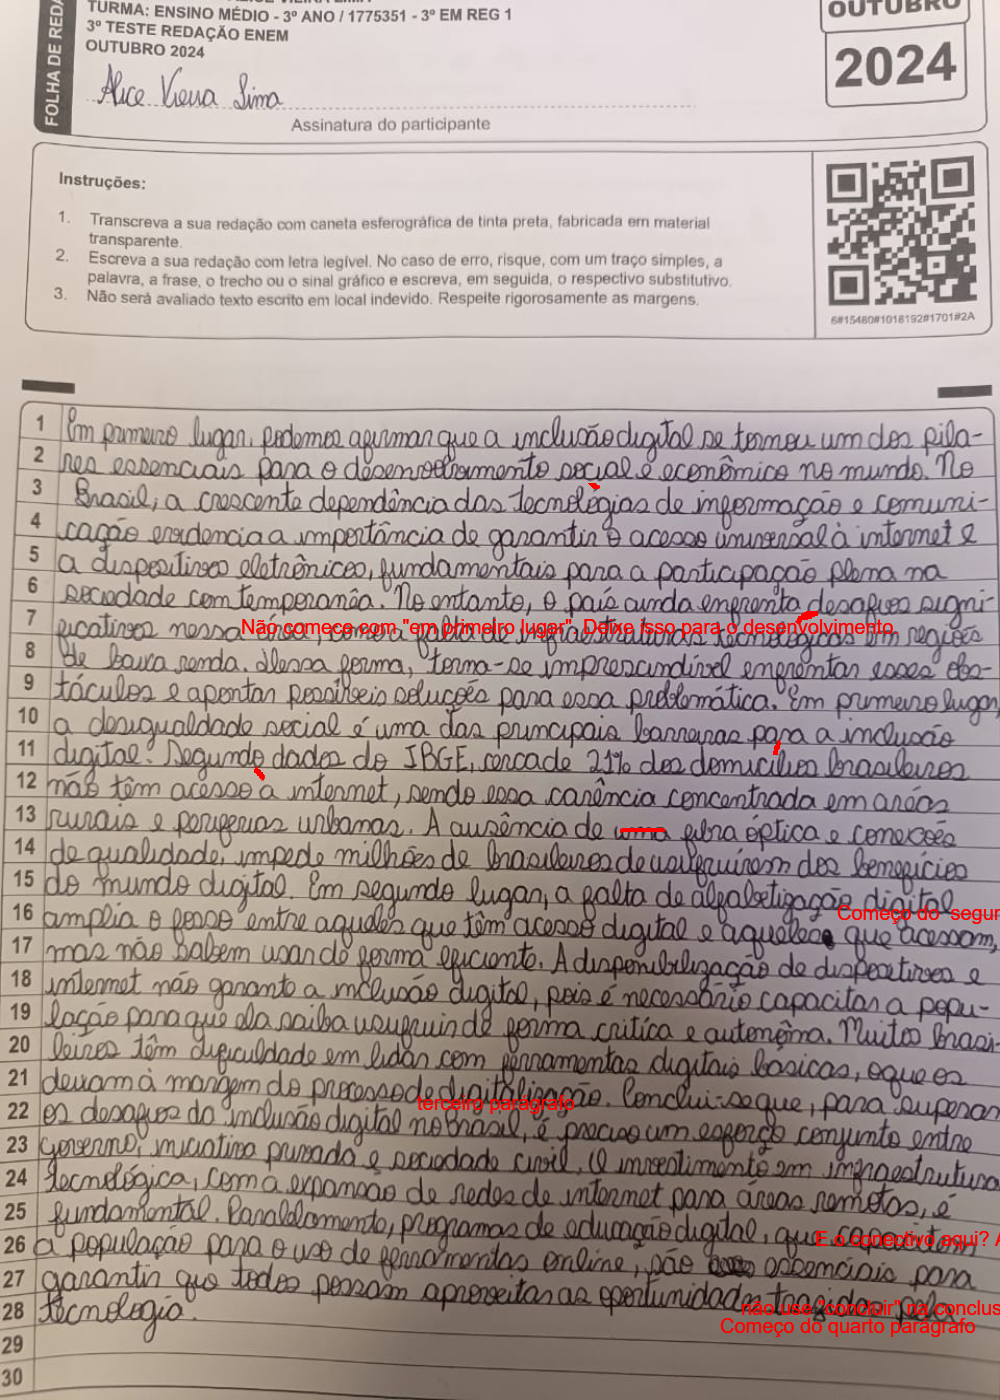 FOLHA DE REDA
TURMA: ENSINO MÉDIO - 3º ANO / 1775351 - 3º EM REG 1
3º TESTE REDAÇÃO ENEM
OUTUBRO 2024
Alice Vieira Lima
Assinatura do participante
OUTUBRO
2024
Instruções:
1. Transcreva a sua redação com caneta esferográfica de tinta preta, fabricada em material
transparente.
2. Escreva a sua redação com letra legível. No caso de erro, risque, com um traço simples, a
palavra, a frase, o trecho ou o sinal gráfico e escreva, em seguida, o respectivo substitutivo.
3. Não será avaliado texto escrito em local indevido. Respeite rigorosamente as margens.
6#15480#1018192#1701#2A
1 Em primeiro lugar, podemos afirmar que a inclusão digital se tornou um dos pila-
2 res essenciais para o desenvolvimento social e econômico no mundo. No
3 Brasil, a crescente dependência das tecnológias de informação e comuni-
4 cação evidencia a importância de garantir o acesso universal à internet e
5 a dispositivos eletrônicos, fundamentais para a participação plena na
6 sociedade comtemporanêa. No entanto, o país ainda enfrenta desafios signi-
Não comece com "em primeiro lugar". Deixe isso para o desenvolvimento
7 ficativos nessa área, como a falta de infraestruturas tecnológicas em regiões
8 de baixa renda. Dessa forma, torna-se imprescindível enfrentar esses obs-
9 táculos e apontar possíveis soluções para essa problemática. Em primeiro lugar,
10 a desigualdade social é uma das principais barreiras para a inclusão
11 digital. Segundo dados do IBGE, cerca de 21% dos domicílios brasileiros
12 não têm acesso a internet, sendo essa carência concentrada em areás
13 rurais e periferias urbanas. A ausência de uma fibra óptica e conexões
14 de qualidade, impede milhões de brasileiros de usufruírem dos benefícios
15 do mundo digital. Em segundo lugar, a falta de alfabetização digital
Começo do segun
16 amplia o fosso entre aqueles que têm acesso digital e aqueles que acessam,
17 mas não sabem usar de forma eficiente. A disponibilização de dispositivos e
18 internet não garante a inclusão digital, pois é necessário capacitar a popu-
19 lação para que ela saiba usufruir de forma crítica e autonôma. Muitos brasi-
20 leiros têm dificuldade em lidar com ferramentas digitais básicas, o que os
21 deixam à margem do processo de digitalização. Conclui-se que, para superar
terceiro parágrafo
22 os desafios da inclusão digital no Brasil, é preciso um esforço conjunto entre
23 governo, iniciativa privada e sociedade civil. O investimento em infraestrutura
24 tecnológica, com a expansão de redes de internet para áreas remotas, é
25 fundamental. Paralelamente, programas de educação digital, que capacitem
E o conectivo aqui? A
26 a população para o uso de ferramentas online, são essenciais para
27 garantir que todos possam aproveitar as oportunidades trazidas pela
não use "concluir" na conclus
28 tecnologia.
Começo do quarto parágrafo
29
30